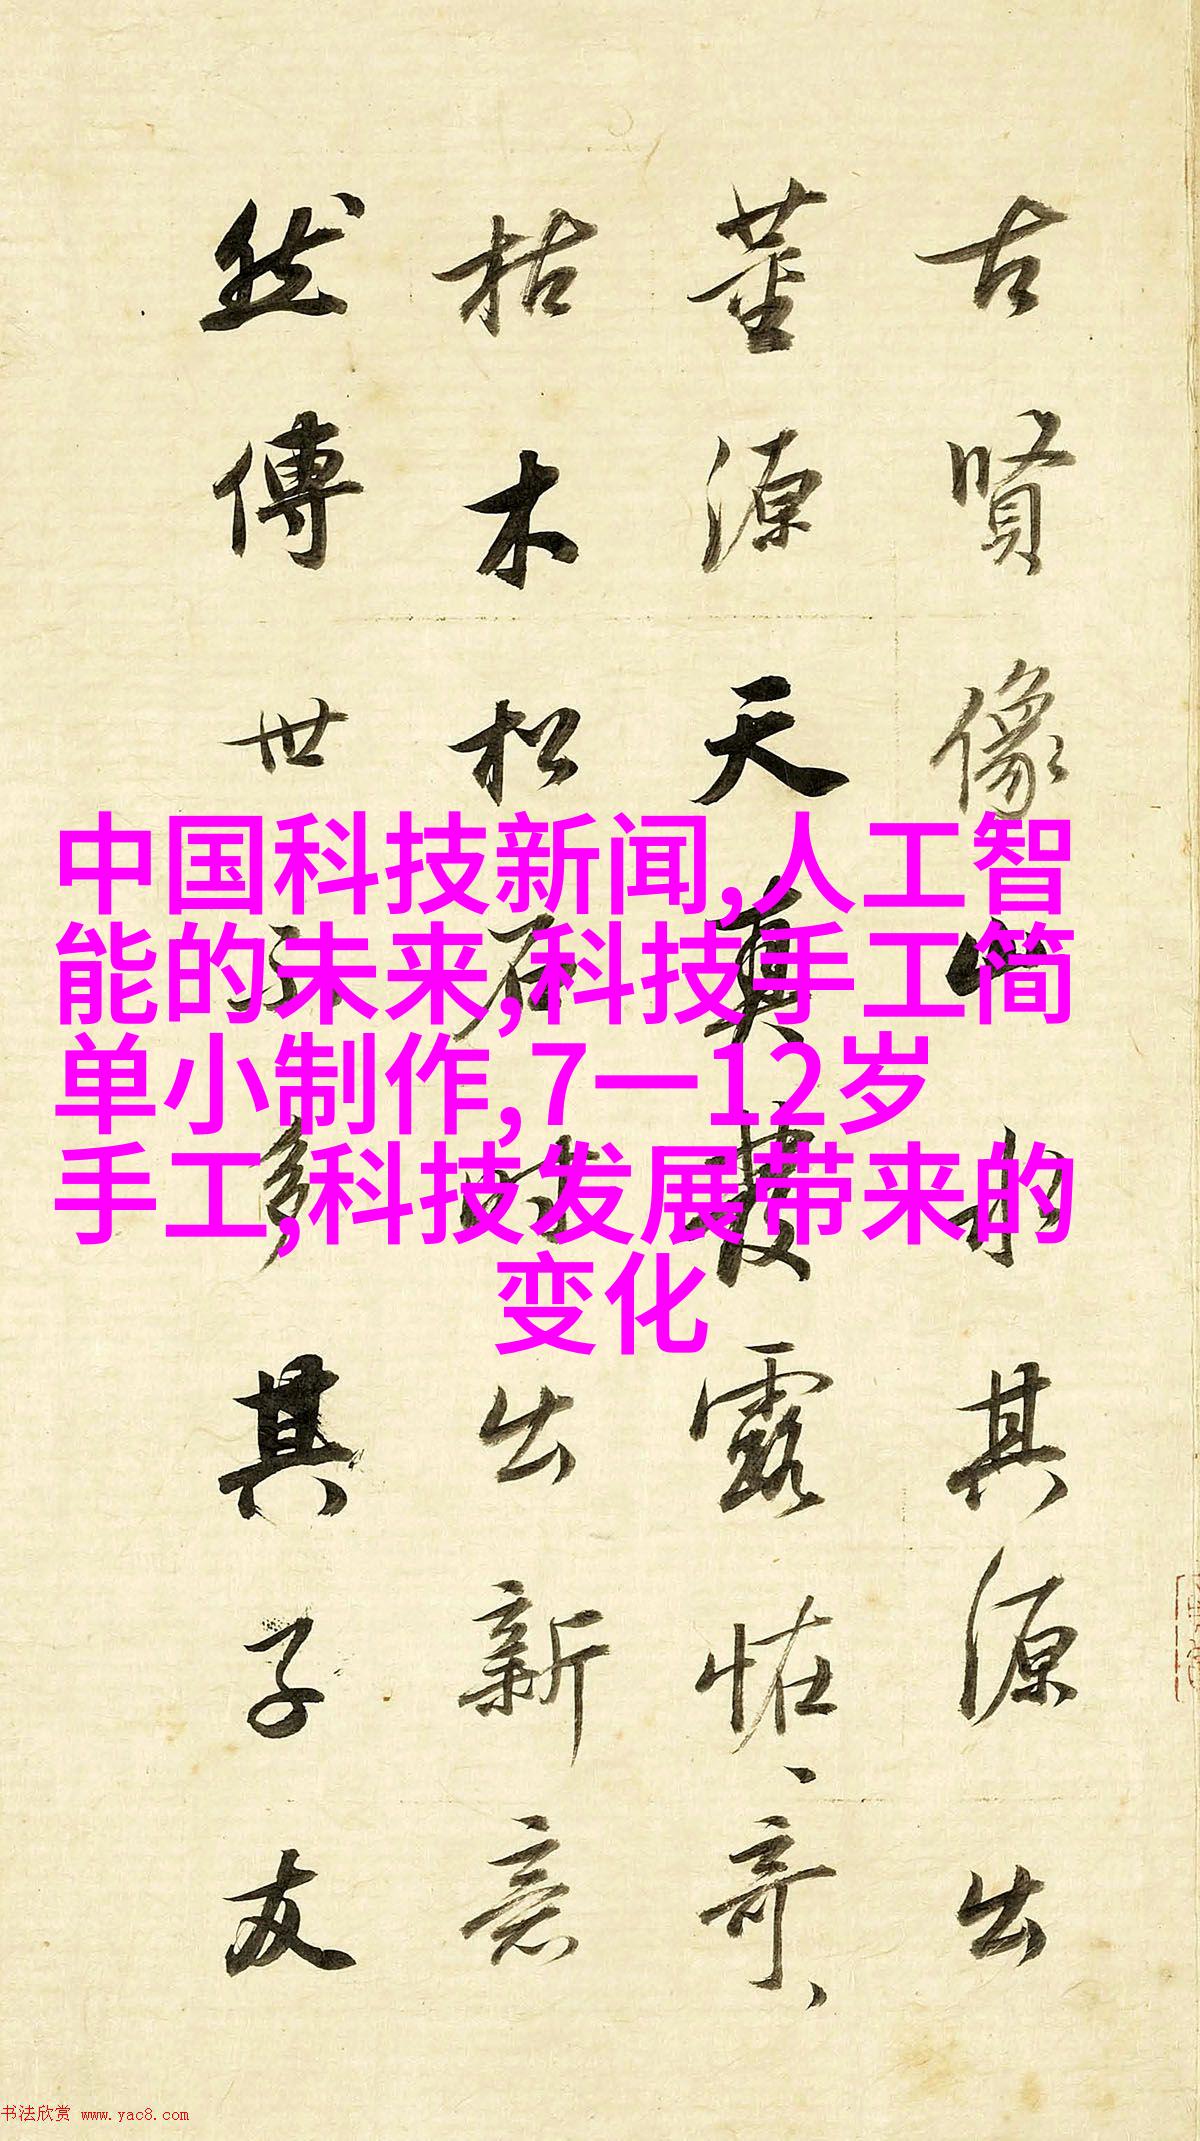 古賢像山水其源出
董源天真發露怪、奇、
枯木松石時出新意
然傳世不多其子友
中国科技新闻,人工智
能的未来,科技手工简
单小制作,7一12岁
手工,科技发展带来的
变化
书法欣赏 www.yac8.com